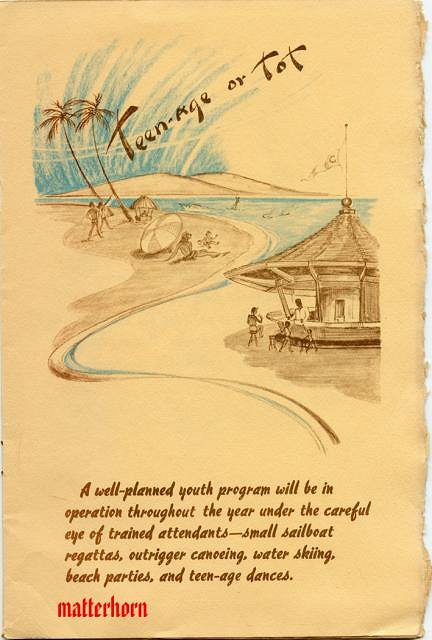 Teen-age or Tot
A well-planned youth program will be in
operation throughout the year under the careful
eye of trained attendants—small sailboat
regattas, outrigger canoeing, water skiing,
beach parties, and teen-age dances.
matterhorn